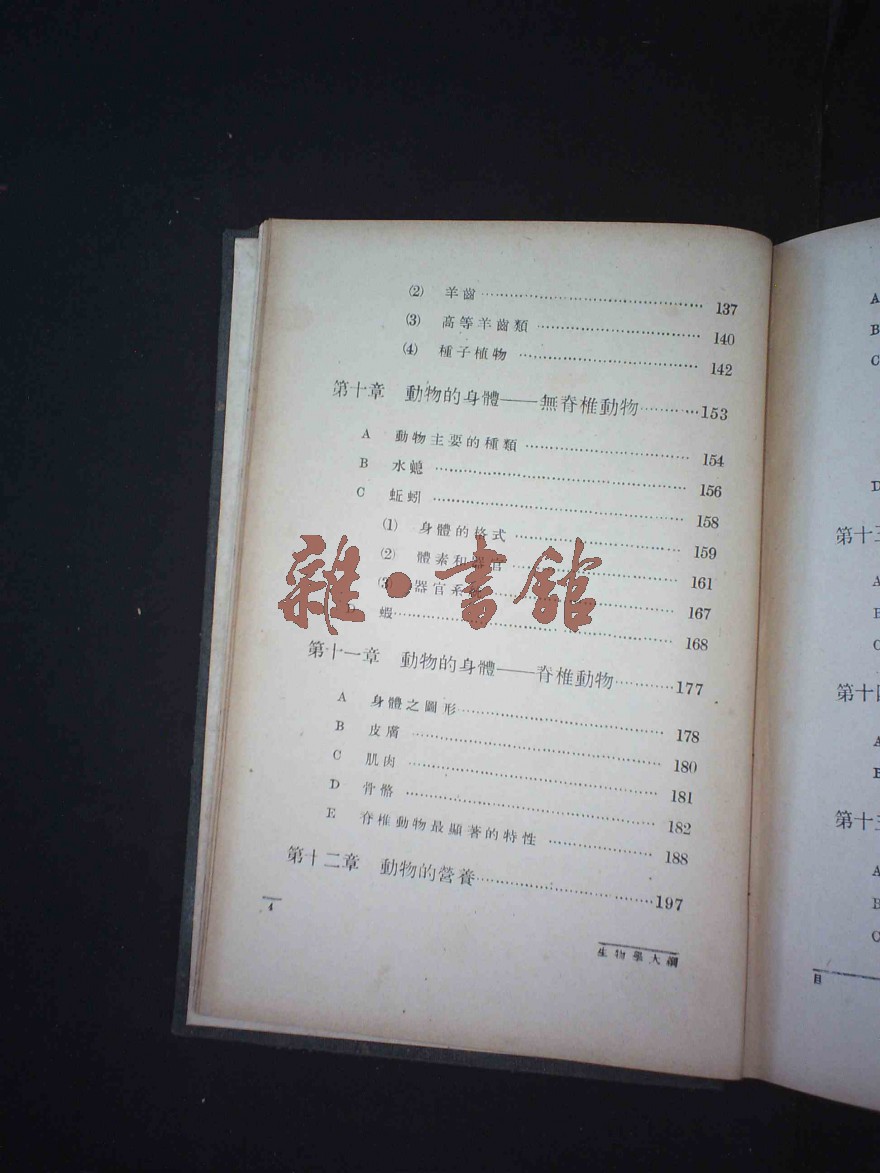 (2) 羊齒 137
(3) 高等羊齒類 140
(4) 種子植物 142
第十章 動物的身體——無脊椎動物 153
A 動物主要的種類 154
B 水螅 156
C 蚯蚓 158
(1) 身體的格式 159
(2) 體素和器官 161
(3) 器官系統 167
蝦 168
第十一章 動物的身體——脊椎動物 177
A 身體之圖形 178
B 皮膚 180
C 肌肉 181
D 骨骼 182
E 脊椎動物最顯著的特性 188
第十二章 動物的營養 197
4
生物學大綱
雜·書館
A
B
C
D
第十三
A
B
C
第十四
A
B
第十
A
B
C
目